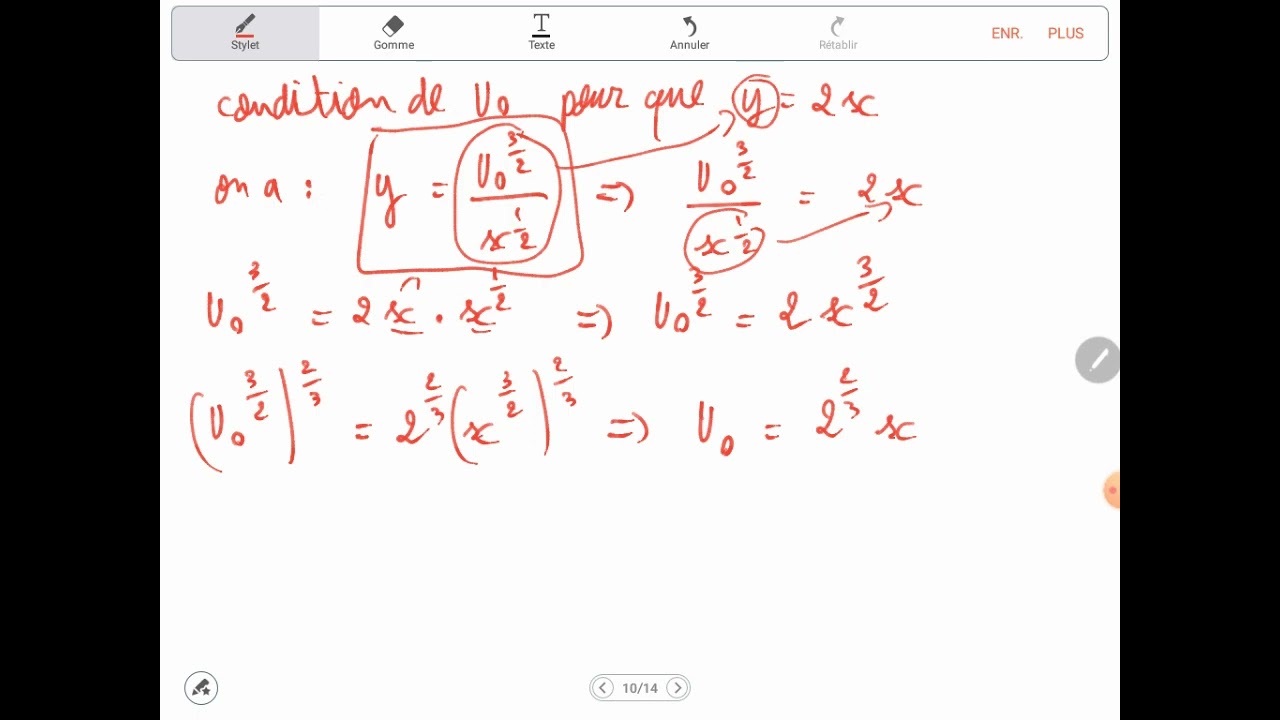 Stylet Gomme Texte Annuler Rétablir ENR. PLUS
condition de U₀ pour que y = 2x
on a : y = U₀^(3/2) / x^(1/2) => U₀^(3/2) / x^(1/2) = 2x
U₀^(3/2) = 2x . x^(1/2) => U₀^(3/2) = 2x^(3/2)
(U₀^(3/2))^(2/3) = 2^(2/3) (x^(3/2))^(2/3) => U₀ = 2^(2/3) x
10/14